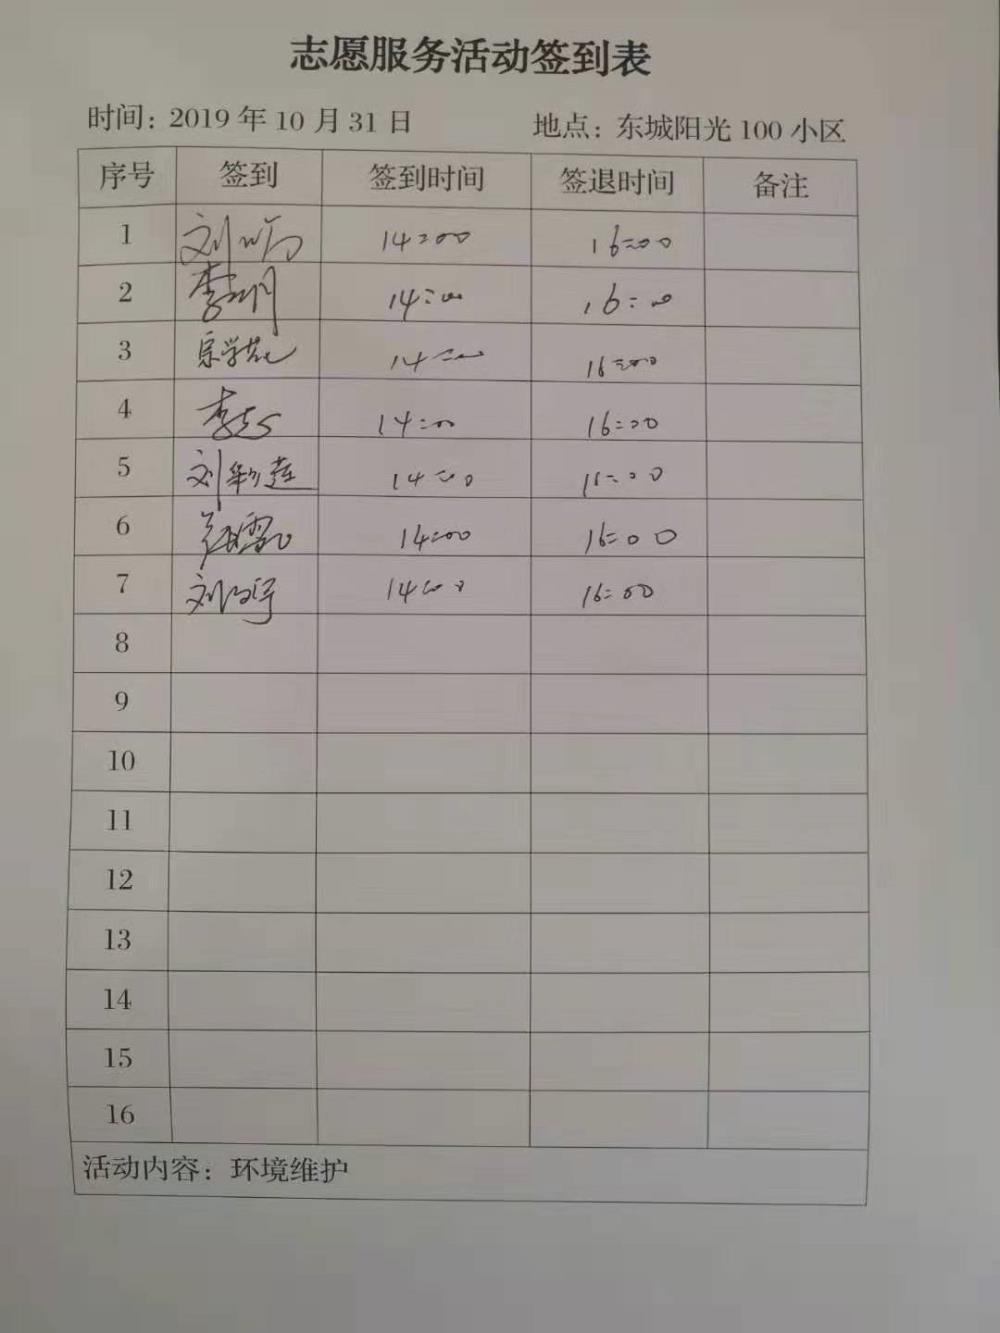 志愿服务活动签到表
时间：2019年10月31日 地点：东城阳光100小区
序号 签到 签到时间 签退时间 备注
1 刘 14:00 16:00
2 李 14:00 16:00
3 宗学 14:00 16:00
4 李 14:00 16:00
5 刘彩莲 14:00 16:00
6 14:00 16:00
7 刘 14:00 16:00
8
9
10
11
12
13
14
15
16
活动内容：环境维护